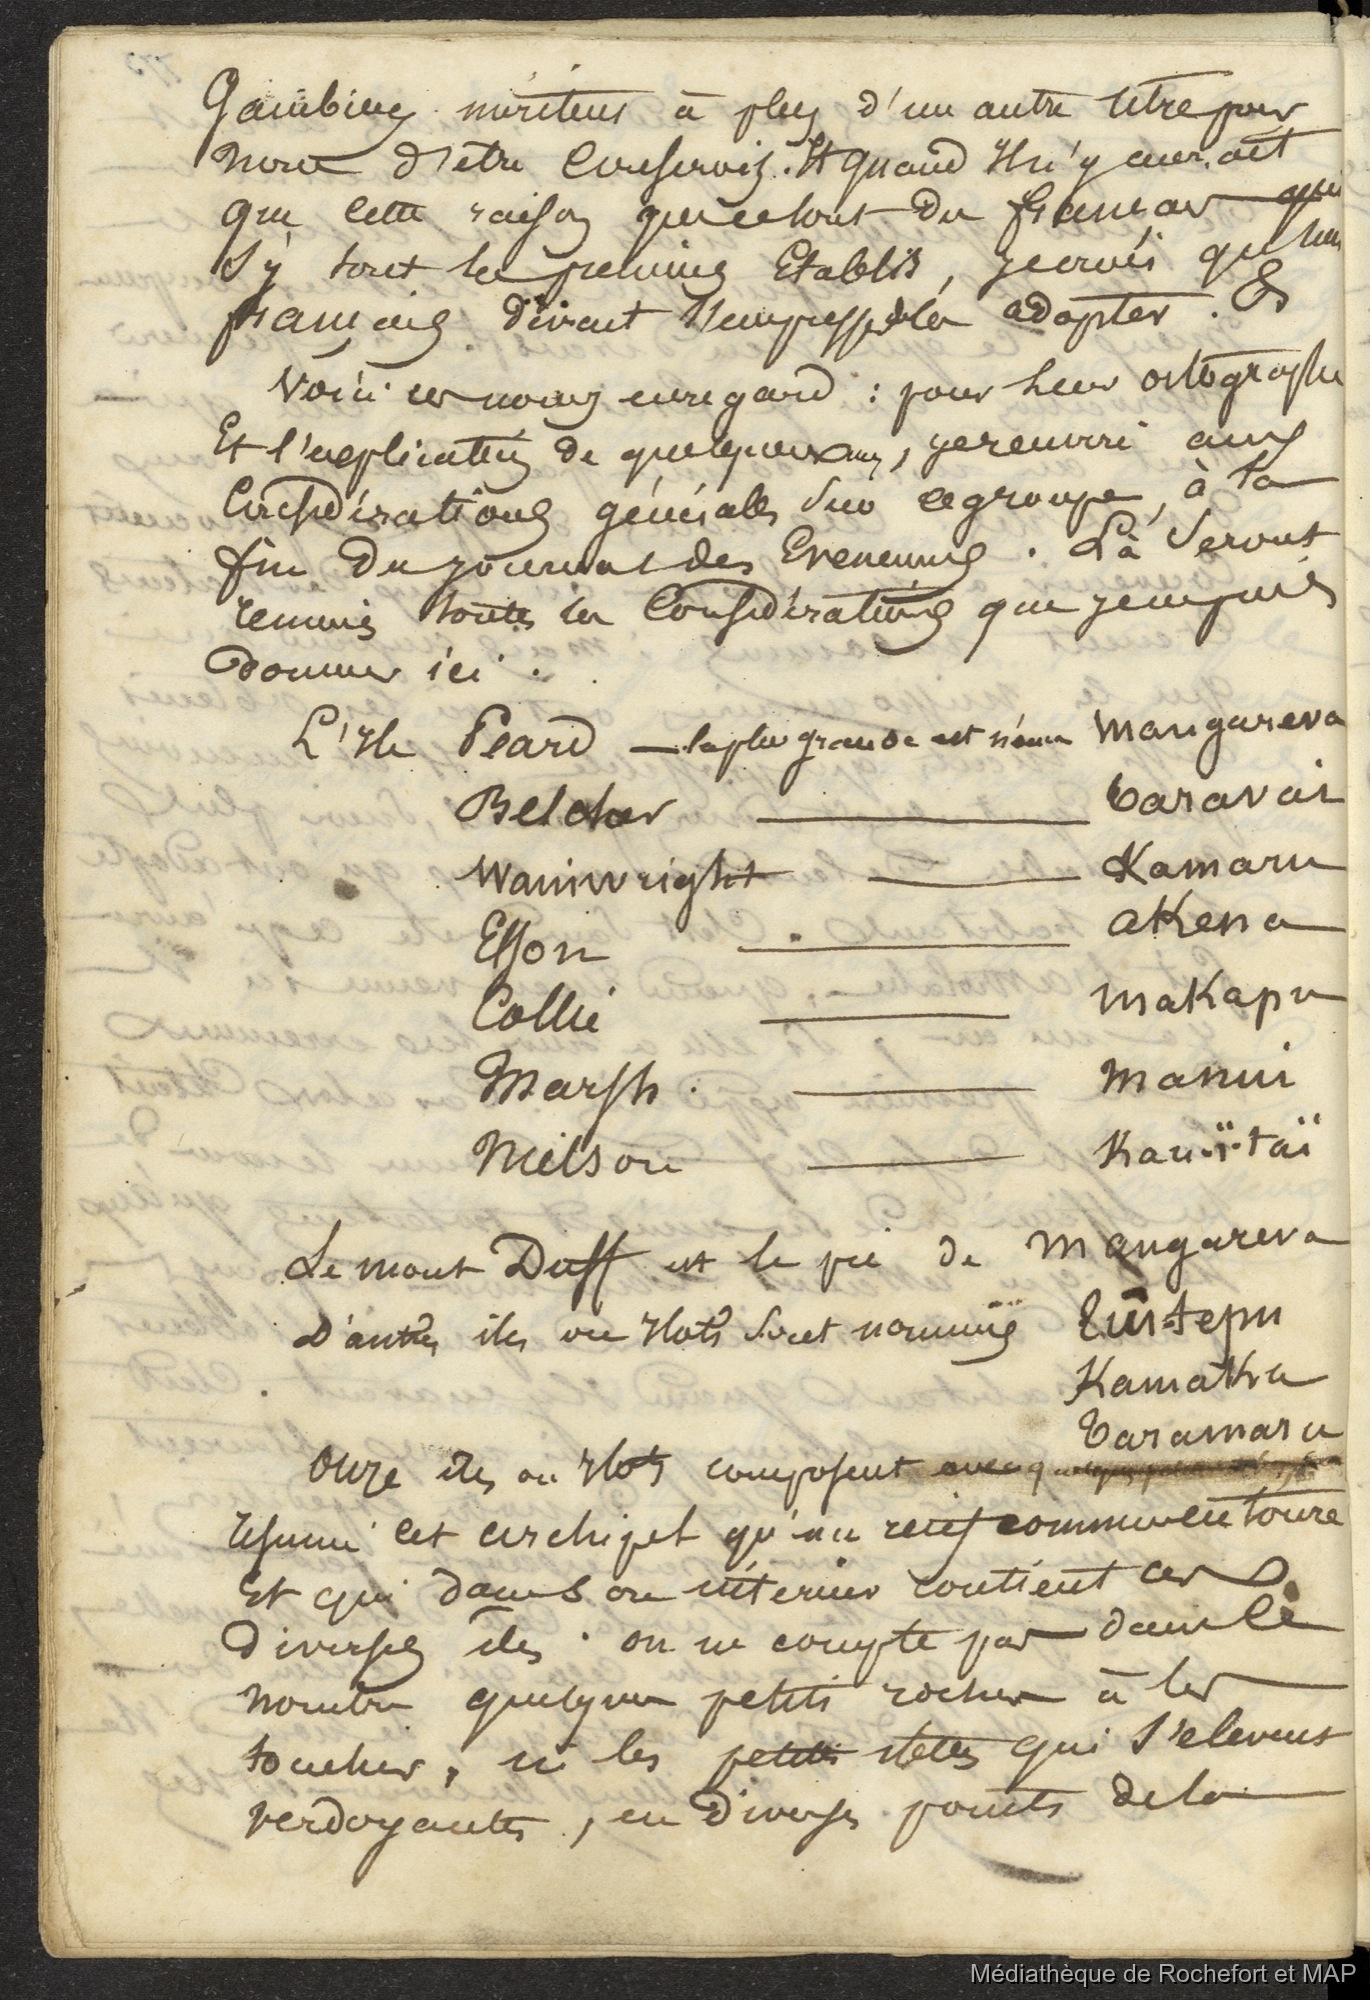 Gambier méritent à plus d'un autre titre pour
nous d'être conservés. Et quand il n'y aurait
que cette raison que ce sont des français qui
s'y sont les premiers Etablis, je crois que les
français devraient s'empresser de les adopter.
Voici ces noms en regard : pour leur ortographe
Et l'explication de quelques uns, je renverrai aux
Considérations générales sur ce groupe, à la
fin du journal des Evenemens. Là seront
réunies toutes les Considérations que je ne puis
donner ici.
L'Ile Peard — la plus grande est nommée Mangareva
Belcher — Taravai
Wainwright — Kamaru
Elson — aKena
Collie — maKapu
Marsh. — Manui
Neilson — Kau-ï-taï
Le mont Duff est le pic de Mangareva
D'autres iles ou Ilots sont nommés Tuï-tepu
KamaKa
Taramaru
Onze iles ou Ilots composent avec quelques
résumé cet archipel qu'un récif commun entoure
Et qui dans son intérieur contient ces
diverses iles. on ne compte pas dans ce
nombre quelques petits rochers à les
toucher, ni les petites ilettes qui s'elevent
verdoyantes, en diverses points de la
Médiathèque de Rochefort et MAP